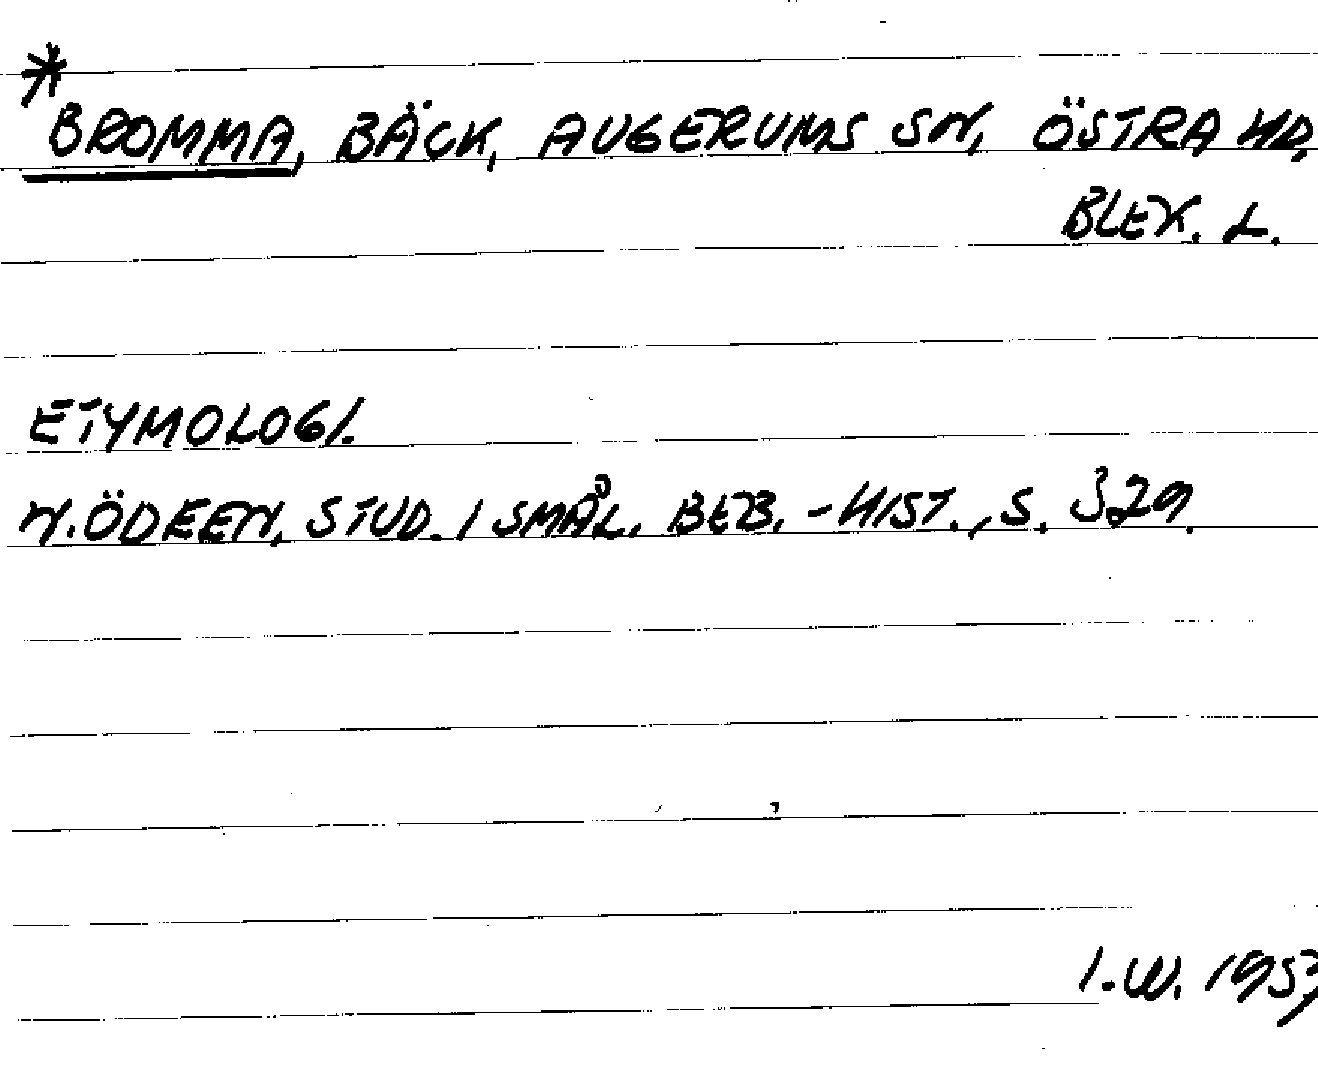 *BROMMA, BÄCK, AUGERUMS SN, ÖSTRA HD,
BLEK. L.
ETYMOLOGI.
N. ÖDEEN, STUD. I SMÅL. BEB.-HIST., S. 329.
I.W. 1953